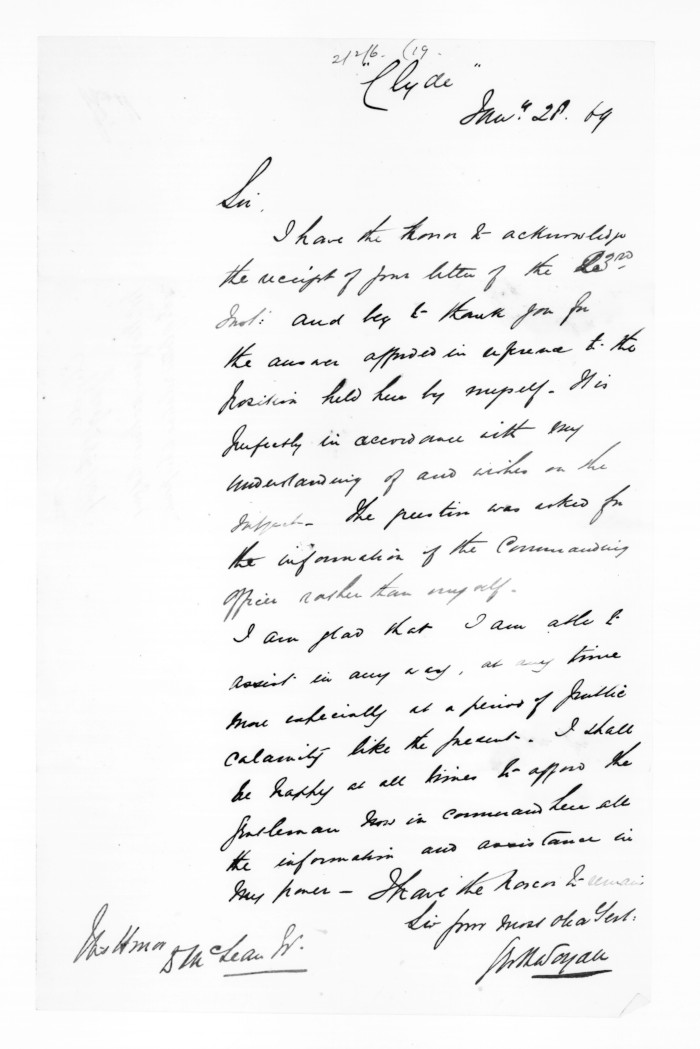 "Clyde"
Jany 28. 69
Sir,
I have the honor to acknowledge
the receipt of your letter of the 23rd
Inst: and beg to thank you for
the answer afforded in reference to the
position held here by myself. It is
perfectly in accordance with my
understanding of and wishes on the
subject. The question was asked for
the information of the Commanding
officer rather than myself.
I am glad that I am able to
assist in any way, at any time
more especially at a period of public
calamity like the present. I shall
be happy at all times to afford the
gentleman now in command here all
the information and assistance in
my power — I have the honor to remain
Sir your most obdt Servt:
His Honor
D McLean